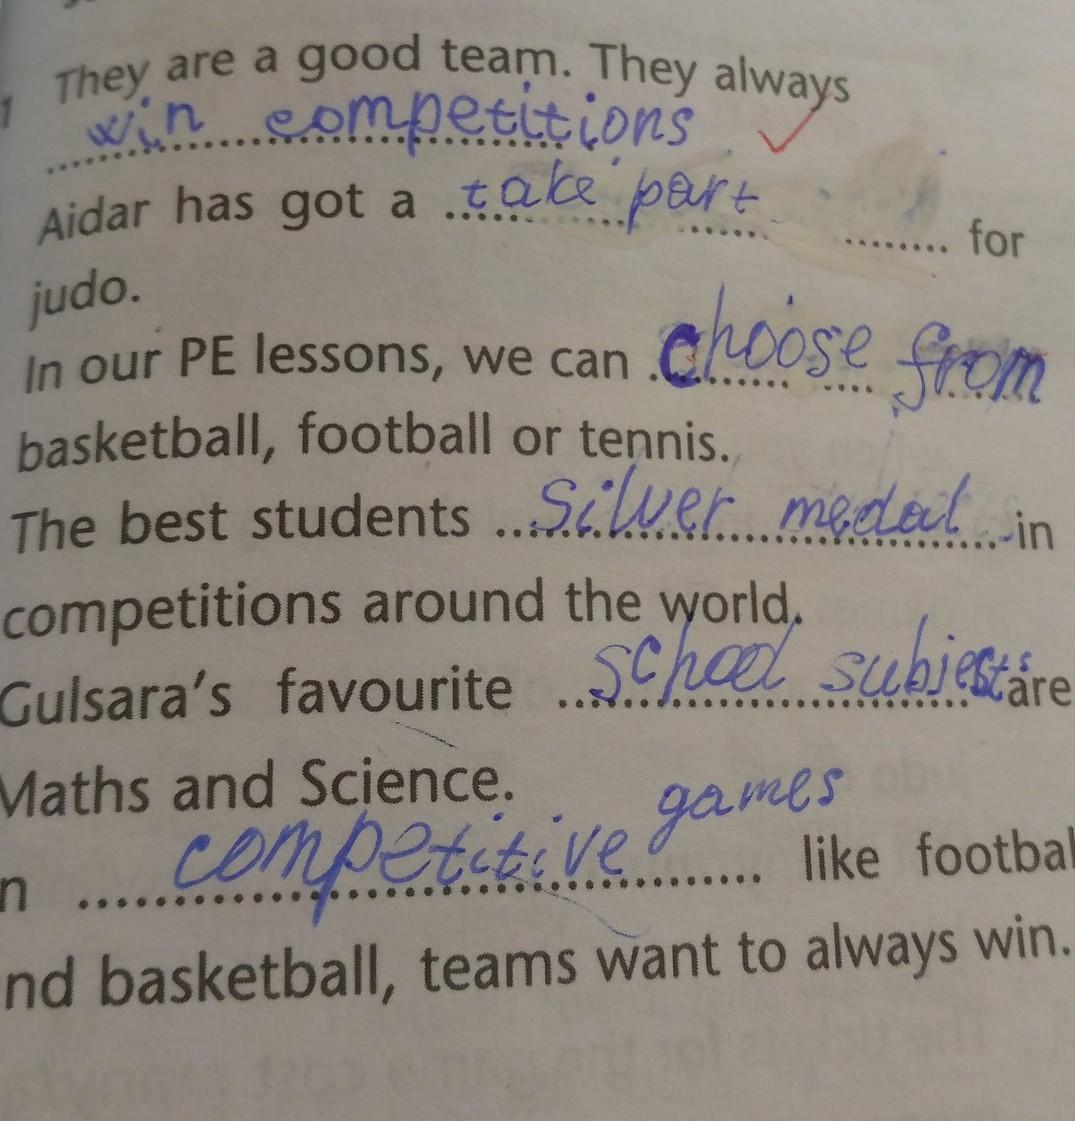 1 They are a good team. They always
win competitions
Aidar has got a take part for
judo.
In our PE lessons, we can choose from
basketball, football or tennis.
The best students silver medal in
competitions around the world.
Gulsara's favourite school subjects are
Maths and Science.
games
n competitive like footbal
nd basketball, teams want to always win.